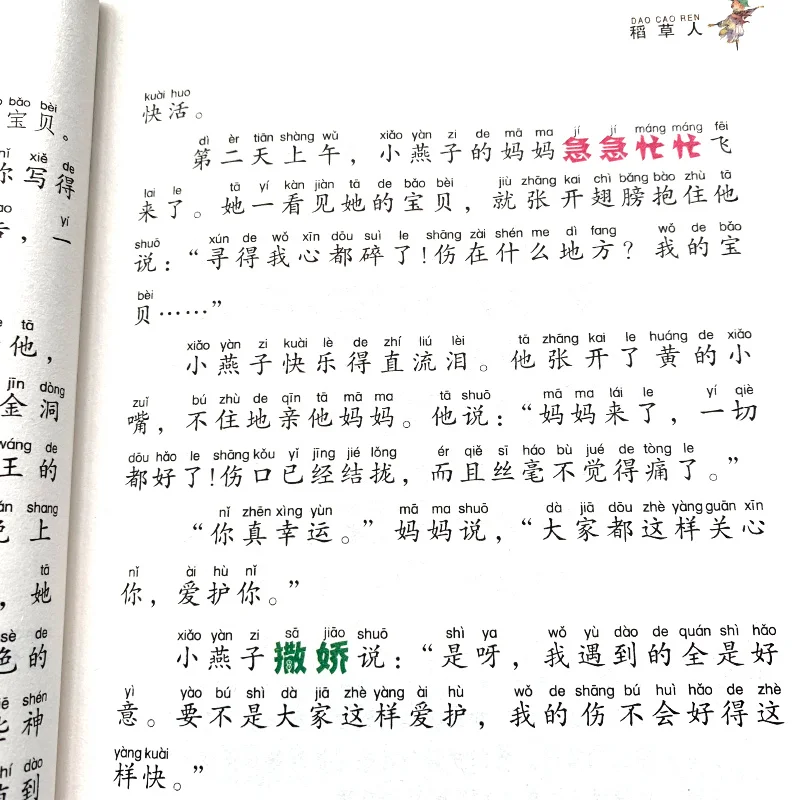 bǎo bèi
宝贝。
xiě de
写得
yí
，一
tā
他，
jīn dòng
金洞
wáng de
王的
shang
上
tā
，她
sè de
色的
shén
神
dào
到
DAO CAO REN
稻草人
kuài huo
快活。
dì èr tiān shàng wǔ xiǎo yàn zi de mā ma jí jí máng máng fēi
第二天上午，小燕子的妈妈急急忙忙飞
lai le tā yí kàn jiàn tā de bǎo bèi jiù zhāng kai chì bǎng bào zhù tā
来了。她一看见她的宝贝，就张开翅膀抱住他
shuō xún de wǒ xīn dōu suì le shāng zài shén me dì fang wǒ de bǎo
说：“寻得我心都碎了！伤在什么地方？我的宝
bèi
贝……”
xiǎo yàn zi kuài lè de zhí liú lèi tā zhāng kai le huáng de xiǎo
小燕子快乐得直流泪。他张开了黄的小
zuǐ bú zhù de qīn tā mā ma tā shuō mā ma lái le yí qiè
嘴，不住地亲他妈妈。他说：“妈妈来了，一切
dōu hǎo le shāng kǒu yǐ jīng jié lǒng ér qiě sī háo bù jué de tòng le
都好了！伤口已经结拢，而且丝毫不觉得痛了。”
nǐ zhēn xìng yùn mā ma shuō dà jiā dōu zhè yàng guān xīn
“你真幸运。”妈妈说，“大家都这样关心
nǐ ài hù nǐ
你，爱护你。”
xiǎo yàn zi sā jiāo shuō shì ya wǒ yù dào de quán shì hǎo
小燕子撒娇说：“是呀，我遇到的全是好
yì yào bú shì dà jiā zhè yàng ài hù wǒ de shāng bú huì hǎo de zhè
意。要不是大家这样爱护，我的伤不会好得这
yàng kuài
样快。”